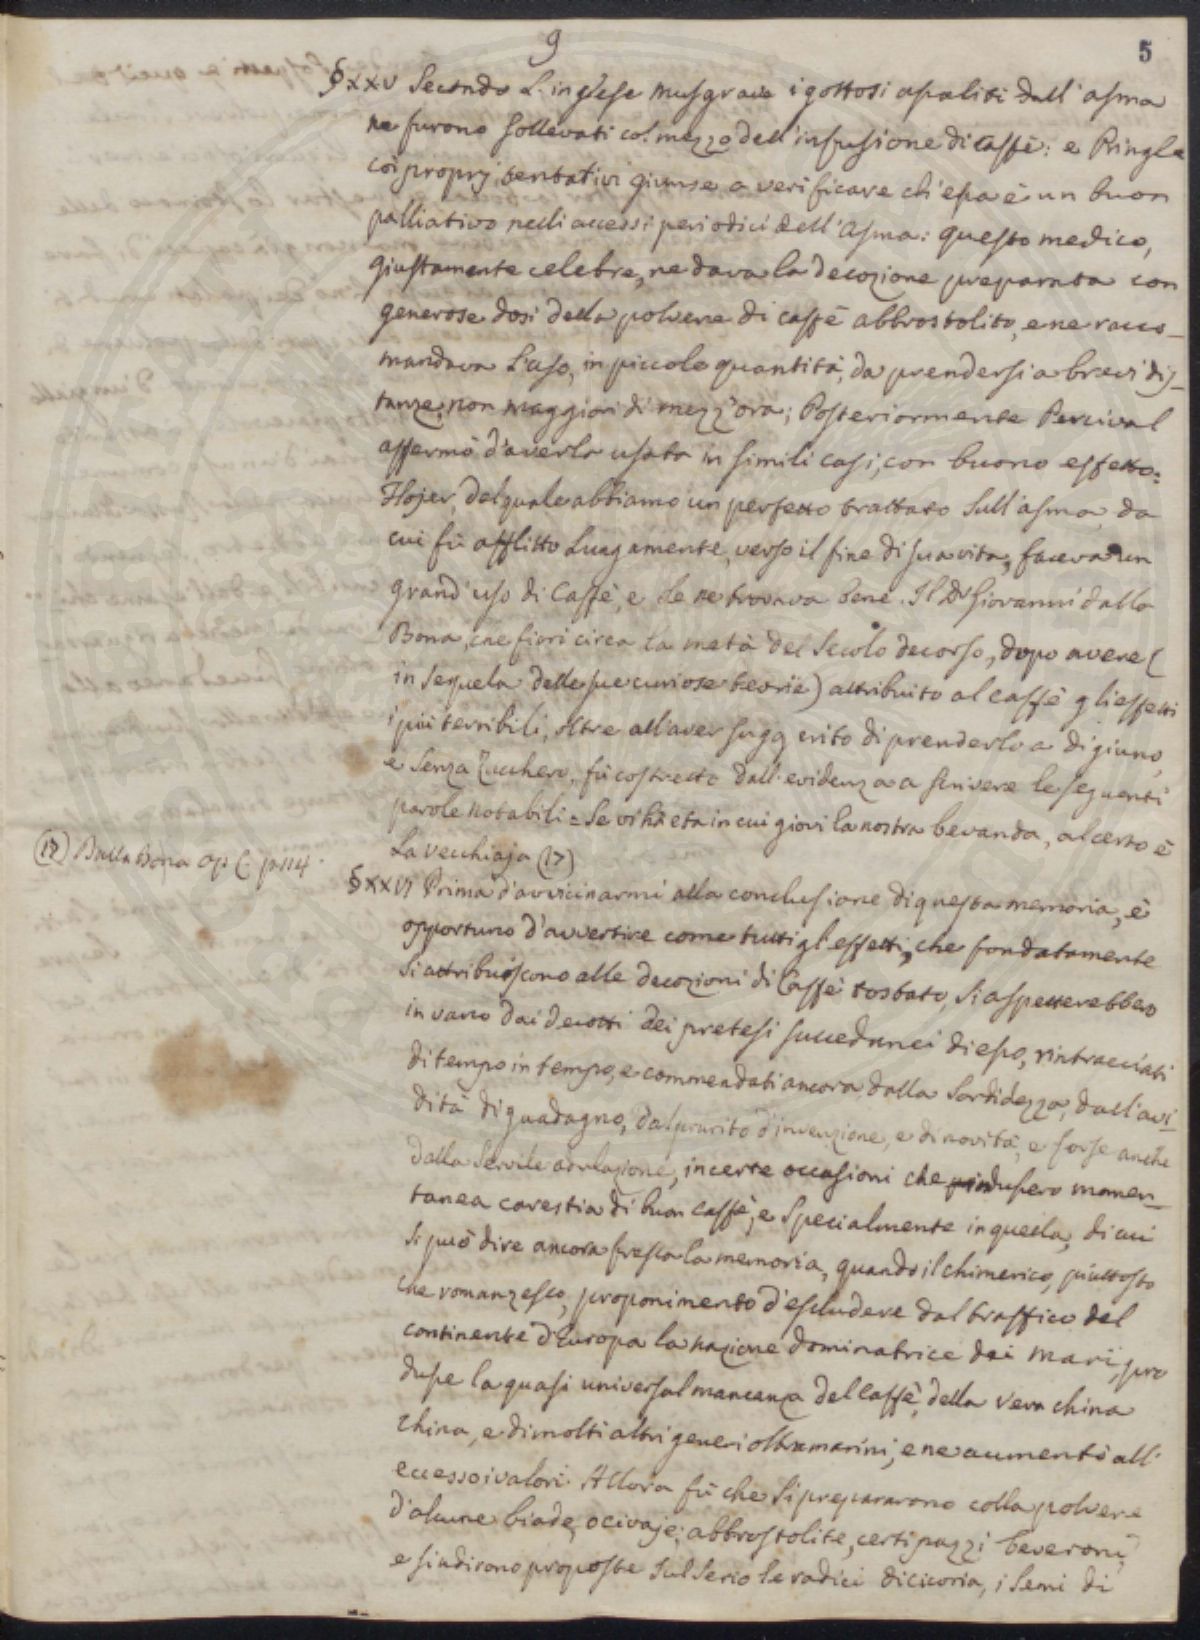 9
5
§XXV Secondo L'inglese Musgrave i gottosi assaliti dall'asma
ne furono sollevati col mezzo dell'infusione di Caffè: e Pringle
coi proprj tentativi giunse a verificare ch'essa è un buon
palliativo nelli accessi periodici dell'Asma: questo medico,
giustamente celebre, ne dava la decozione preparata con
generose dosi della polvere di caffè abbrostolito, e ne racco-
mandava l'uso, in piccole quantità, da prendersi a brevi dis-
tanze, non maggiori di mezz'ora; Posteriormente Percival
affermò d'averla usata in simili casi, con buono effetto:
Flojer, del quale abbiamo un perfetto trattato sull'asma, da
cui fù afflitto lungamente, verso il fine di sua vita, faceva un
grand'uso di Caffè, e se ne trovava bene. Il Dr Giovanni dalla
Bona, che fiorì circa la metà del Secolo decorso, dopo avere (
in sequela delle sue curiose teorie) attribuito al caffè gli effetti
i più terribili, oltre all'aver suggerito di prenderlo a digiuno,
e senza Zucchero, fù costretto dall'evidenza a scrivere le seguenti
parole notabili = Se vi hà età in cui giovi la nostra bevanda, al certo è
La vecchiaja (17)
(17) Dalla Bona Op C: p 114.
§XXVI Prima d'avvicinarmi alla conclusione di questa memoria, è
opportuno d'avvertire come tutti gl'effetti, che fondatamente
si attribuiscono alle decozioni di Caffè tostato, si aspetterebbero
in vano dai decotti dei pretesi succedanei di esso, rintracciati
di tempo in tempo, e commendati ancora dalla Sordidezza, dall'avi-
dità di guadagno, dal prurito d'invenzione, e di novità, e forse anche
dalla Servile adulazione, in certe occasioni che indussero momen-
tanea carestia di buon Caffè, e specialmente in quella, di cui
si può dire ancora fresca la memoria, quando il chimerico, piuttosto
che romanzesco, proponimento d'escludere dal traffico del
continente d'Europa la nazione dominatrice dei mari, pro
dusse la quasi universal mancanza del Caffè, della vera china
china, e di molti altri generi oltramarini, e ne aumentò all'
eccesso i valori. Allora fù che si prepararono colla polvere
d'alcune biade, o civaje, abbrostolite, certi pazzi beveroni,
e si udirono proposte sul serio le radici di cicoria, i semi di